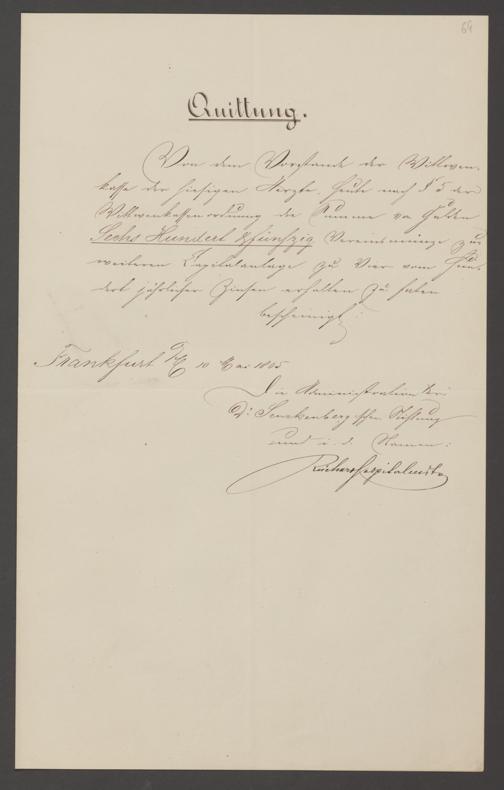 64
Quittung.
Von dem Vorstande der Wittwen-
kasse der hiesigen Aerzte, heute nach § 5 der
Wittwenkassenordnung die Summe von Gulden
Sechs Hundert & fünfzig Vereinsmünze zur
weiteren Capitalanlage zu Vier vom Hun-
dert jährlicher Zinsen erhalten zu haben
bescheinigt:
Frankfurt a/M 10 Mai 1865
Die Administration der
Dr. Senckenberg'schen Stiftung
und i. d. Namen:
Hospitalmstr